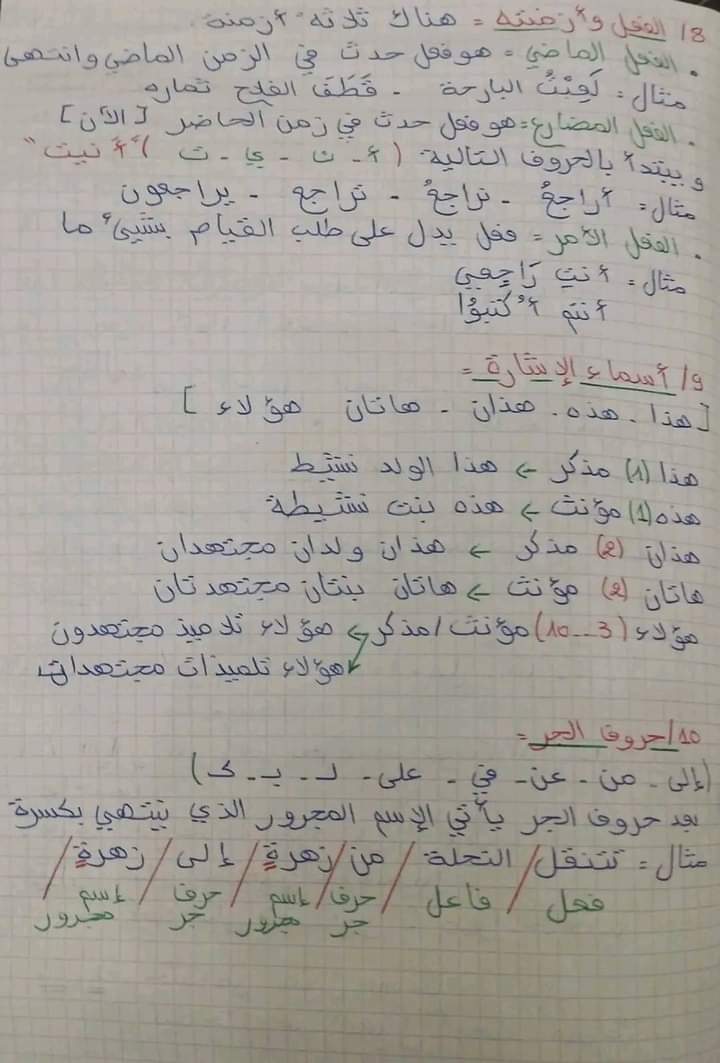 8/ الفعل وأزمنته = هناك ثلاثة أزمنة
. الفعل الماضي = هو فعل حدث في الزمن الماضي وانتهى
مثال = لَعِبْتُ البارحة - قَطَفَ الفلاح ثماره
. الفعل المضارع = هو فعل حدث في زمن الحاضر [الآن]
ويبتدأ بالحروف التالية (أ - ن - ي - ت) "أنيت"
مثال = أراجعُ - نراجعُ - تراجع - يراجعون
. الفعل الأمر = فعل يدل على طلب القيام بشيئ ما
مثال = أنتِ رَاجِعِي
أنتم أُكْتبُوا
9/ أسماء الإشارة =
[هذا - هذه - هذان - هاتان هؤلاء]
هذا (1) مذكر ← هذا الولد نشيط
هذه (1) مؤنث ← هذه بنت نشيطة
هذان (2) مذكر ← هذان ولدان مجتهدان
هاتان (2) مؤنث ← هاتان بنتان مجتهدتان
هؤلاء (3...10) مؤنث/مذكر ← هؤلاء تلاميذ مجتهدون
هؤلاء تلميذات مجتهدات
10/ حروف الجر =
(إلى - من - عن - في - على - لـ - بـ - كـ)
بعد حروف الجر يأتي الإسم المجرور الذي ينتهي بكسرة
مثال = تتنقل / النحلة / من / زهرةٍ / إلى / زهرةٍ /
فعل / فاعل / حرف جر / إسم مجرور / حرف جر / إسم مجرور